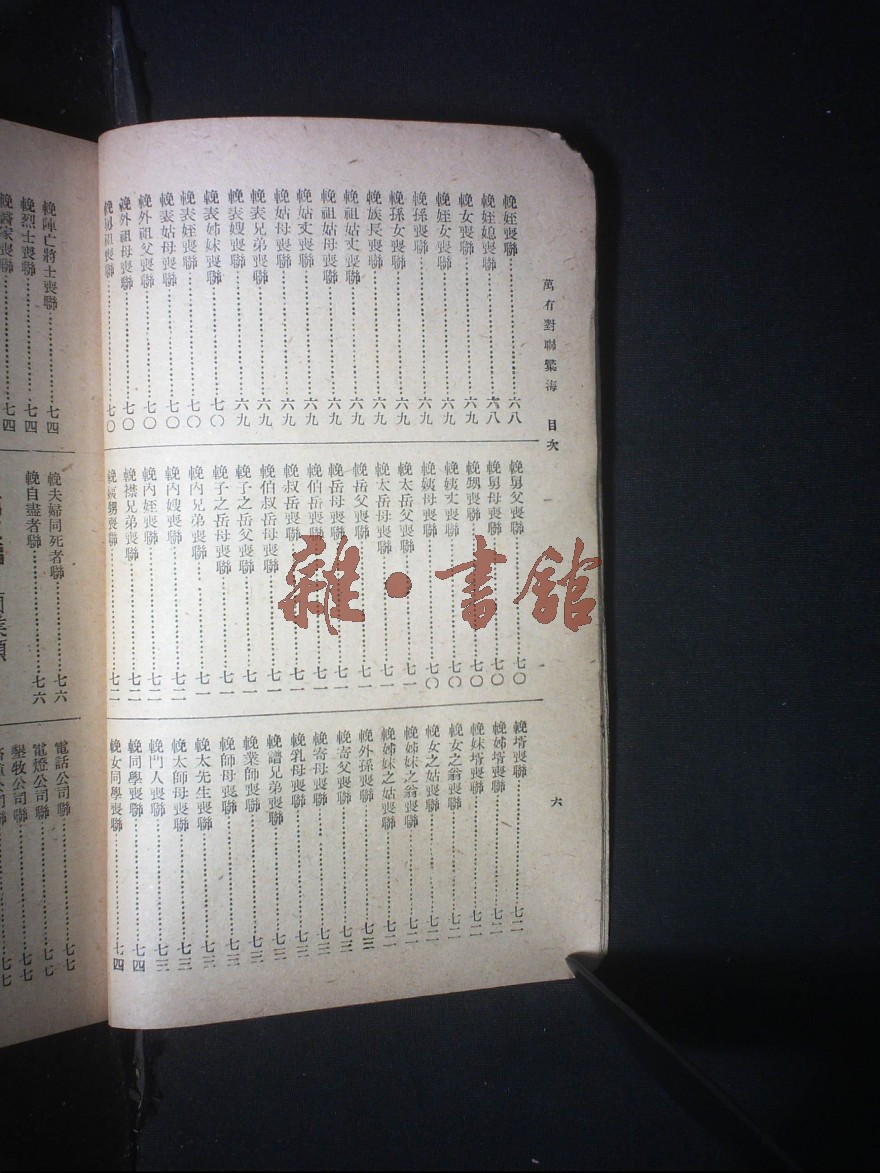 萬有對聯彙海 目次 六
輓姪喪聯………六八
輓姪媳喪聯………六八
輓女喪聯………六九
輓姪女喪聯………六九
輓孫喪聯………六九
輓孫女喪聯………六九
輓族長喪聯………六九
輓祖姑丈喪聯………六九
輓祖姑母喪聯………六九
輓姑丈喪聯………六九
輓姑母喪聯………六九
輓表兄弟喪聯………六九
輓表嫂喪聯………六九
輓表姊妹喪聯………七〇
輓表姪喪聯………七〇
輓表姑母喪聯………七〇
輓外祖父喪聯………七〇
輓外祖母喪聯………七〇
輓舅祖喪聯………七〇
輓舅父喪聯………七〇
輓舅母喪聯………七〇
輓甥喪聯………七〇
輓姨丈喪聯………七〇
輓姨母喪聯………七〇
輓太岳父喪聯………七一
輓太岳母喪聯………七一
輓岳父喪聯………七一
輓岳母喪聯………七一
輓伯岳喪聯………七一
輓叔岳喪聯………七一
輓伯叔岳母喪聯………七一
輓子之岳父喪聯………七一
輓子之岳母喪聯………七一
輓內兄弟喪聯………七一
輓內嫂喪聯………七二
輓內姪喪聯………七二
輓襟兄弟喪聯………七二
輓姨甥喪聯………七二
輓壻喪聯………七二
輓姊壻喪聯………七二
輓妹壻喪聯………七二
輓女之翁喪聯………七二
輓女之姑喪聯………七二
輓姊妹之翁喪聯………七二
輓姊妹之姑喪聯………七二
輓外孫喪聯………七三
輓寄父喪聯………七三
輓寄母喪聯………七三
輓乳母喪聯………七三
輓譜兄弟喪聯………七三
輓業師喪聯………七三
輓師母喪聯………七三
輓太先生喪聯………七三
輓太師母喪聯………七三
輓門人喪聯………七三
輓同學喪聯………七四
輓女同學喪聯………七四
輓陣亡將士喪聯………七四
輓烈士喪聯………七四
輓醫家喪聯………七四
輓夫婦同死者聯………七六
輓自盡者聯………七六
電話公司聯………七七
電燈公司聯………七七
墾牧公司聯………七七
公司聯………七七
雜·書館